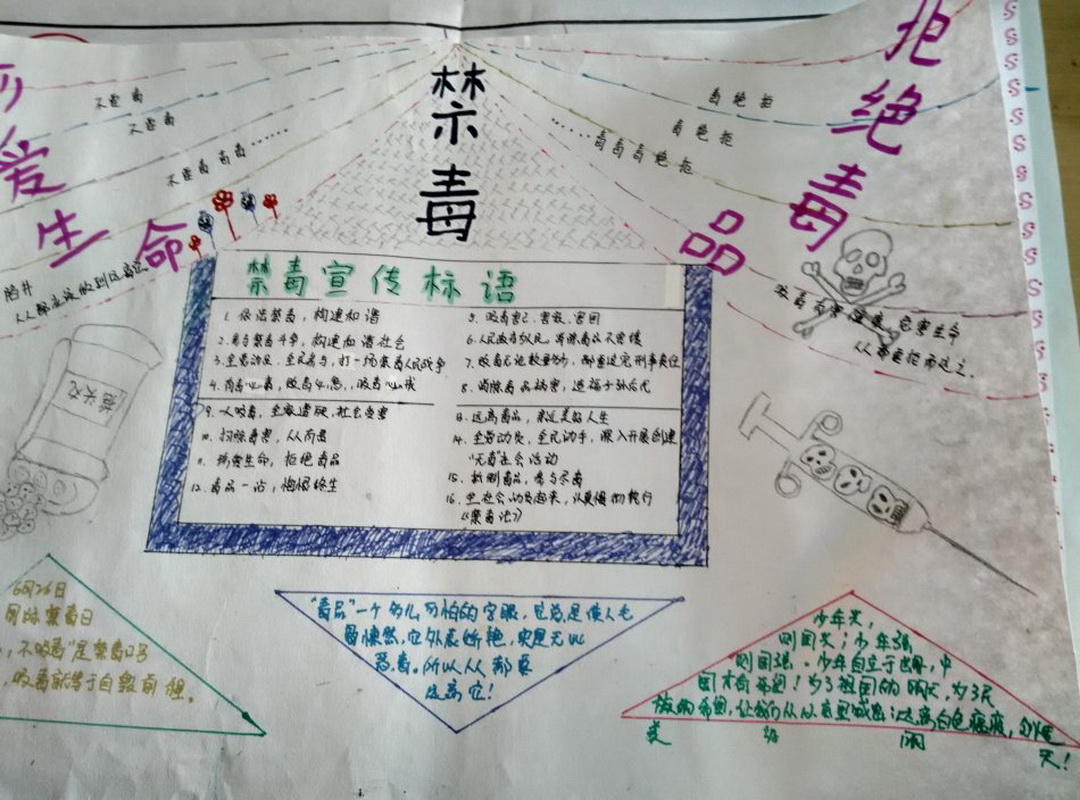 禁毒
珍爱生命
拒绝毒品
不吸毒
不吸毒
不吸毒毒毒……
毒绝拒
毒绝拒
……毒毒毒绝拒
人人都应该做到远离它
吸毒有害健康,危害生命
从而要拒而远之.
禁毒宣传标语
1. 依法禁毒,构建和谐
2. 参与禁毒斗争,构建和谐社会
3. 全员动员、全民参与,打一场禁毒人民战争
9. 一人吸毒,全家遭殃,社会受害
10. 扫除毒害,从而
11. 珍爱生命,拒绝毒品
12. 毒品一沾,悔恨终生
5. 吸毒害己、害家、害国
6. 人民政府为人民,消除毒品不容缓
7. 吸毒无论数量多少,都要追究刑事责任
8. 消除毒品祸害,造福子孙后代
13. 远离毒品,亲近美好人生
14. 全警动员,全民动手,深入开展创建
"无毒"社会活动
15. 抵制毒品,参与禁毒
16. 全社会动员起来,认真履行
《禁毒法》
6月26日
国际禁毒日
,不吸毒"是禁毒口号
,吸毒就等于自毁前程。
"毒品"一个多么可怕的字眼,它总是使人毛
骨悚然,它外表娇艳,实是无比
恶毒。所以人人都要
远离它!
少年兴,
则国兴;少年强
则国强.少年自立于世界,中
国才有希望!为了祖国的明天,为了民
族的希望,让我们从心底里喊出:远离白色瘟疫,
美
天!